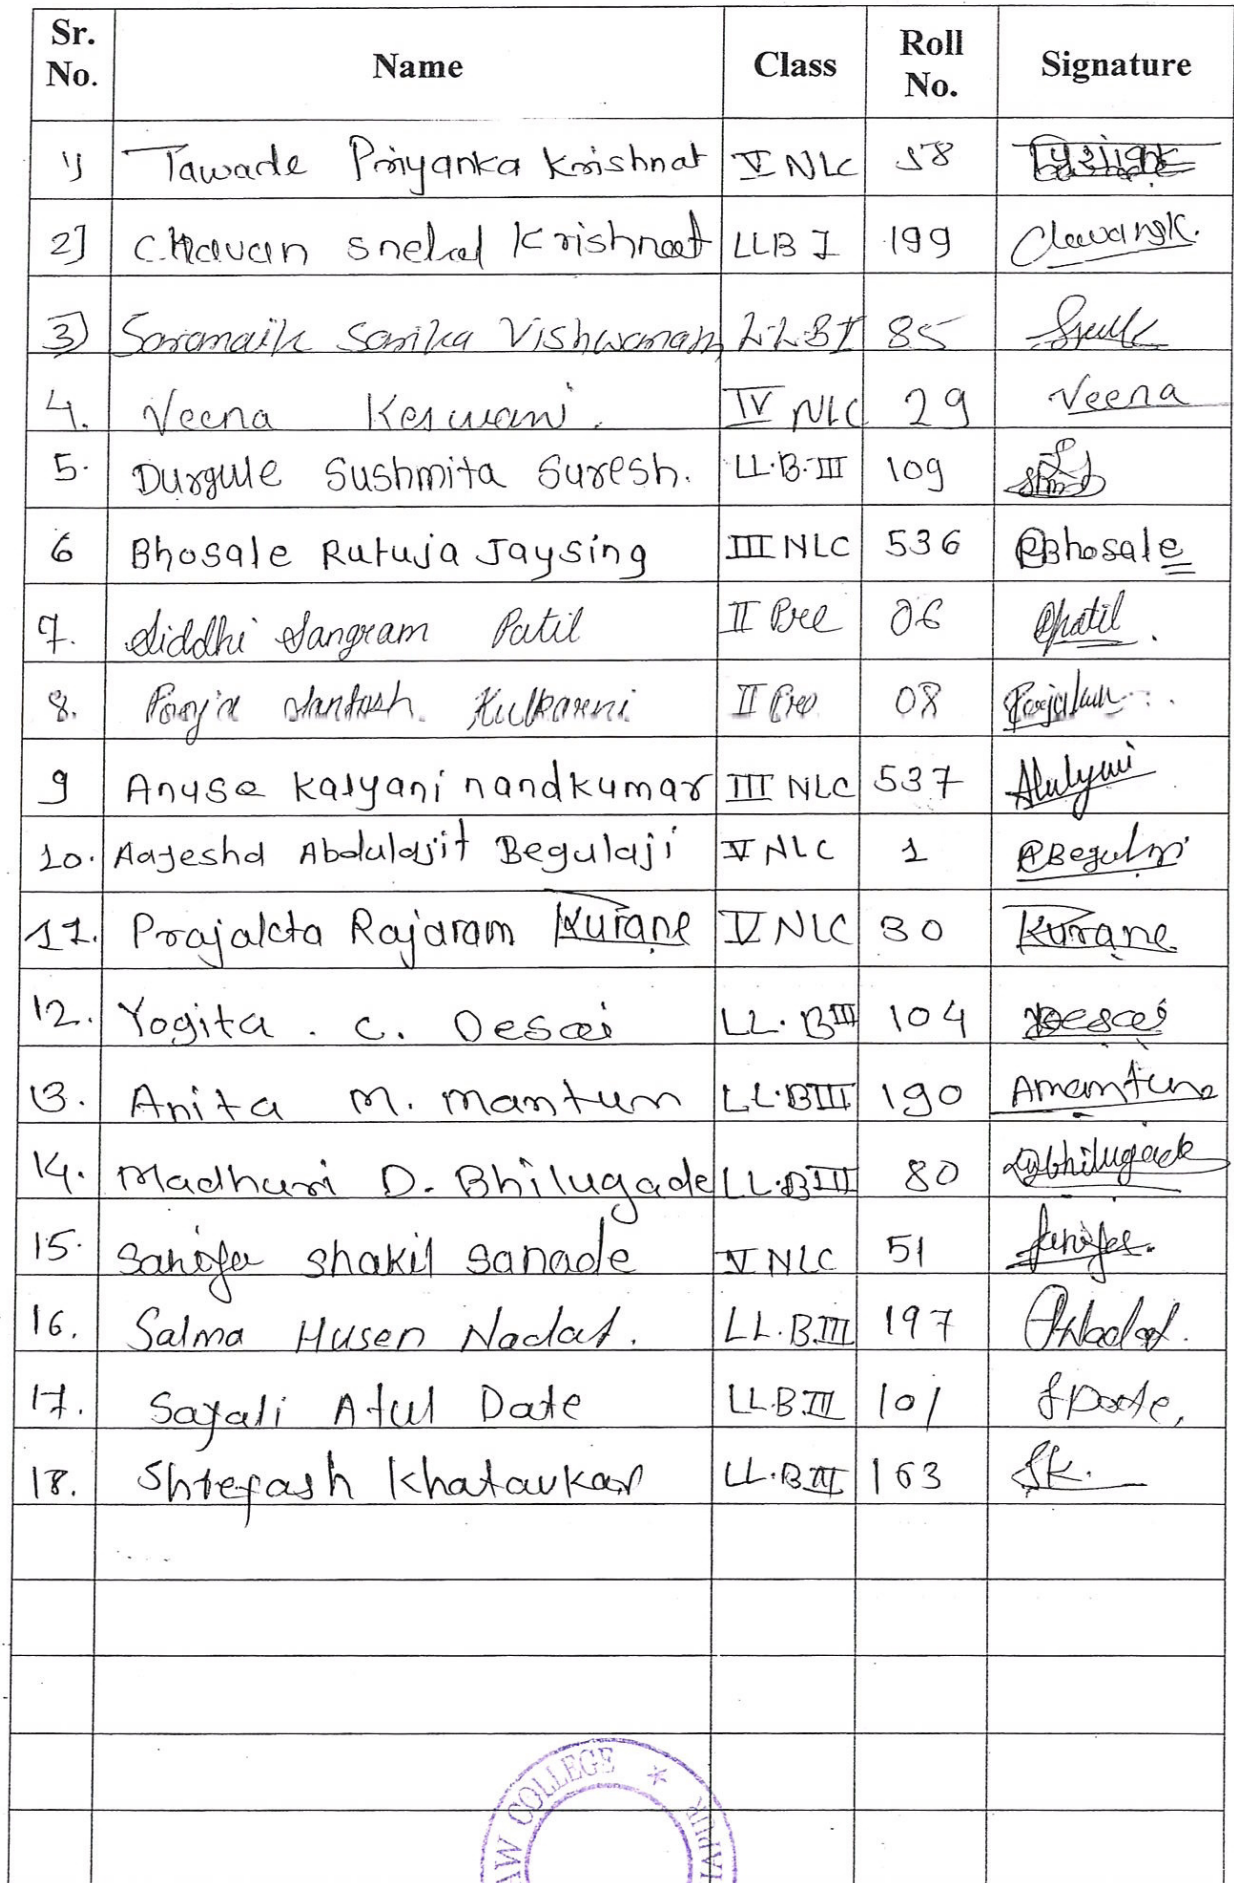 Sr. No. Name Class Roll No. Signature
1) Tawade Priyanka Krishnat V NLC 58
2] Chavan Snehal Krishnat LLB I 199 Chavansk.
3) Sarnaik Sarika Vishwanath L.L.B I 85
4. Veena Keswani. IV NLC 29 Veena
5. Durgule Sushmita Suresh. LL.B.III 109
6 Bhosale Rutuja Jaysing III NLC 536 RBhosale
7. Siddhi Sangram Patil II Pre 06 Spatil.
8. Pooja Santosh. Kulkarni II Pre 08 Poojakul
9 Anuse Kalyani nandkumar III NLC 537 AKalyani
10. Aayesha Abdulajit Begulaji V NLC 1
11. Prajakta Rajaram Kurane V NLC 30 Kurane
12. Yogita . C. Desai LL.B III 104 YDesai
13. Anita M. Mantur LL.B III 190
14. Madhuri D. Bhilugade LL.B III 80 Bhilugade
15. Sanofar Shakil Sanade V NLC 51
16. Salma Husen Nadaf. LL.B.III 197 Nadaf.
17. Sayali Atul Date LL.B III 101 SDate,
18. Shreyash Khatavkar LL.B III 163 SK.
AW COLLEGE *